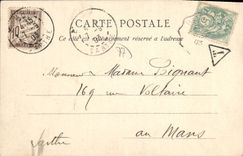 CARTE POSTALE
Ce côté est exclusivement réservé à l'adresse
T
Monsieur Madame Bignant
169 rue Voltaire
au Mans
Sarthe